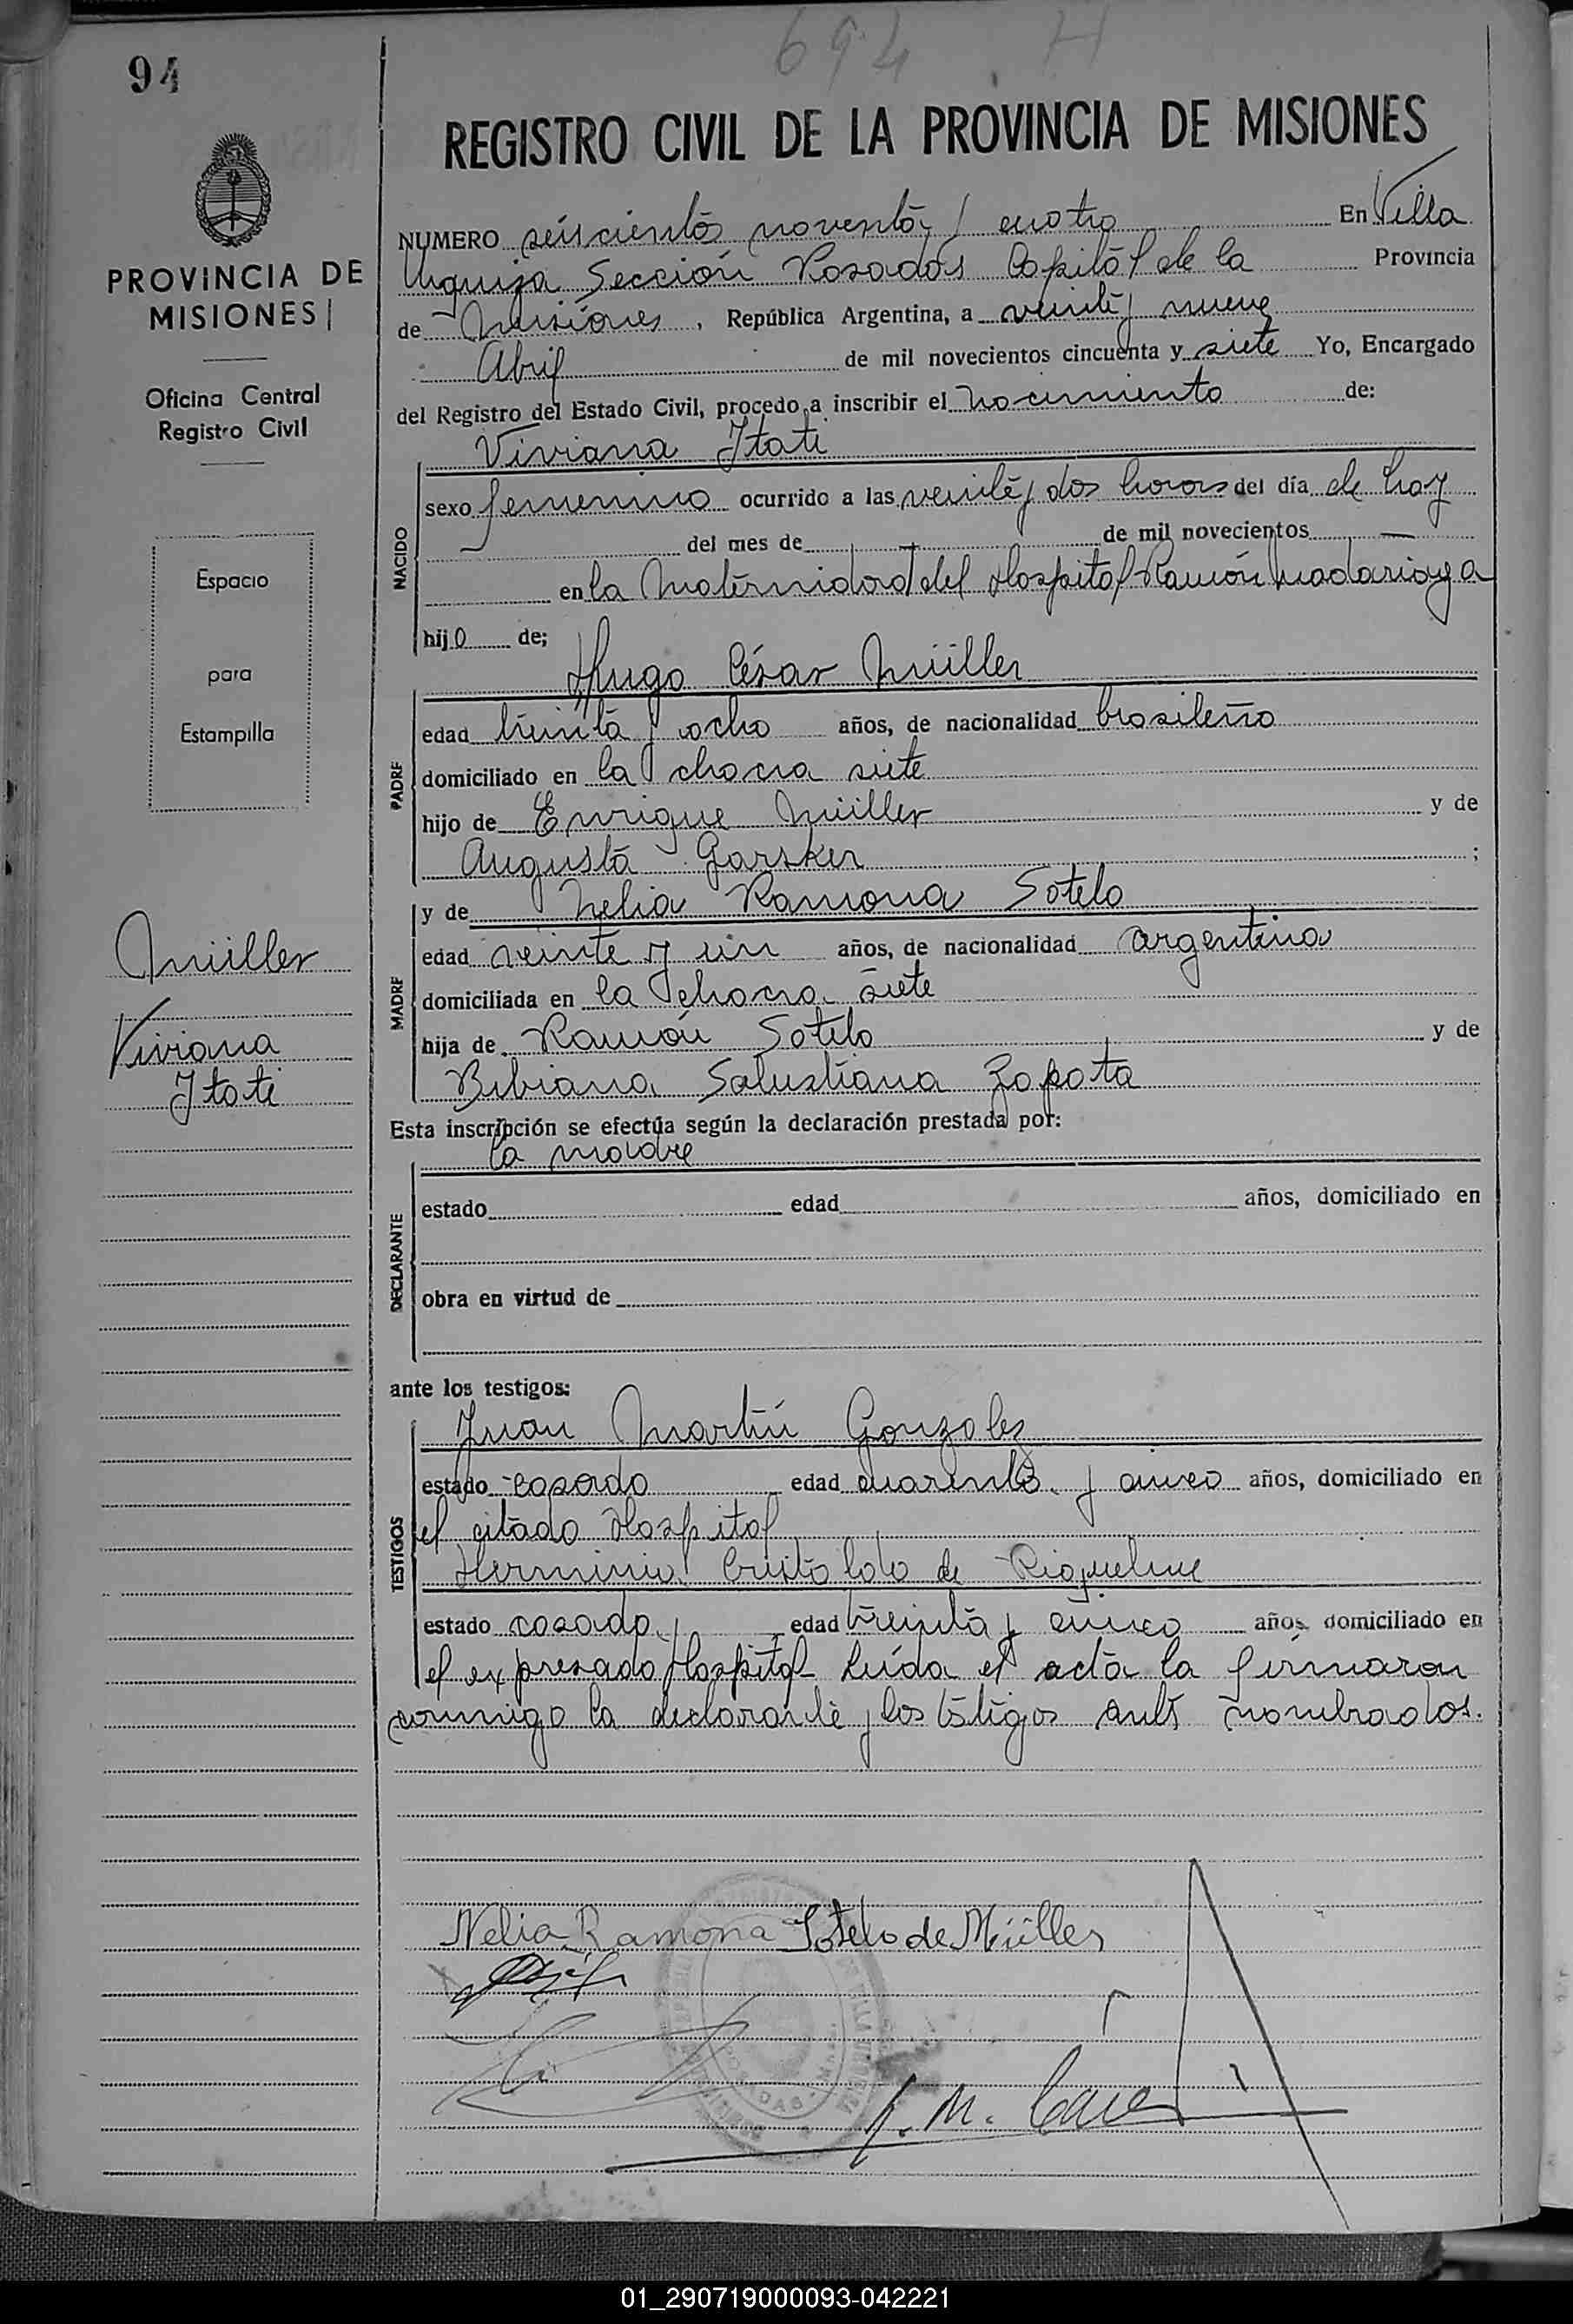 694 H
94
REGISTRO CIVIL DE LA PROVINCIA DE MISIONES
NUMERO seiscientos noventa y cuatro En Villa
Urquiza Sección Posadas Capital de la Provincia
de Misiones, República Argentina, a veinte y nueve
Abril de mil novecientos cincuenta y siete Yo, Encargado
del Registro del Estado Civil, procedo a inscribir el nacimiento de:
Viviana Itati
NACIDO
sexo femenino ocurrido a las veinte y dos horas del día de hoy
— del mes de — de mil novecientos —
en la Maternidad del Hospital Ramón Madariaga
hijo de;
Hugo César Müller
PADRE
edad treinta y ocho años, de nacionalidad brasileño
domiciliado en la chacra siete
hijo de Enrique Müller y de
Augusta Garsker ;
y de Nelia Ramona Sotelo
MADRE
edad veinte y un años, de nacionalidad argentina
domiciliada en la chacra siete
hija de Ramón Sotelo y de
Bibiana Salustiana Zapata
Esta inscripción se efectúa según la declaración prestada por:
la madre
DECLARANTE
estado edad años, domiciliado en
obra en virtud de
ante los testigos:
Juan Martín Gonzalez
TESTIGOS
estado casado edad cuarenta y cinco años, domiciliado en
el citado Hospital
Herminia Cristo de Riquelme
estado casada, edad treinta y cinco años domiciliado en
el expresado Hospital Leída el acta la firmaron
conmigo la declarante y los testigos antes nombrados.
Nelia Ramona Sotelo de Müller
J. M.
PROVINCIA DE
MISIONES
Oficina Central
Registro Civil
Espacio
para
Estampilla
Müller
Viviana
Itati
01_290719000093-042221